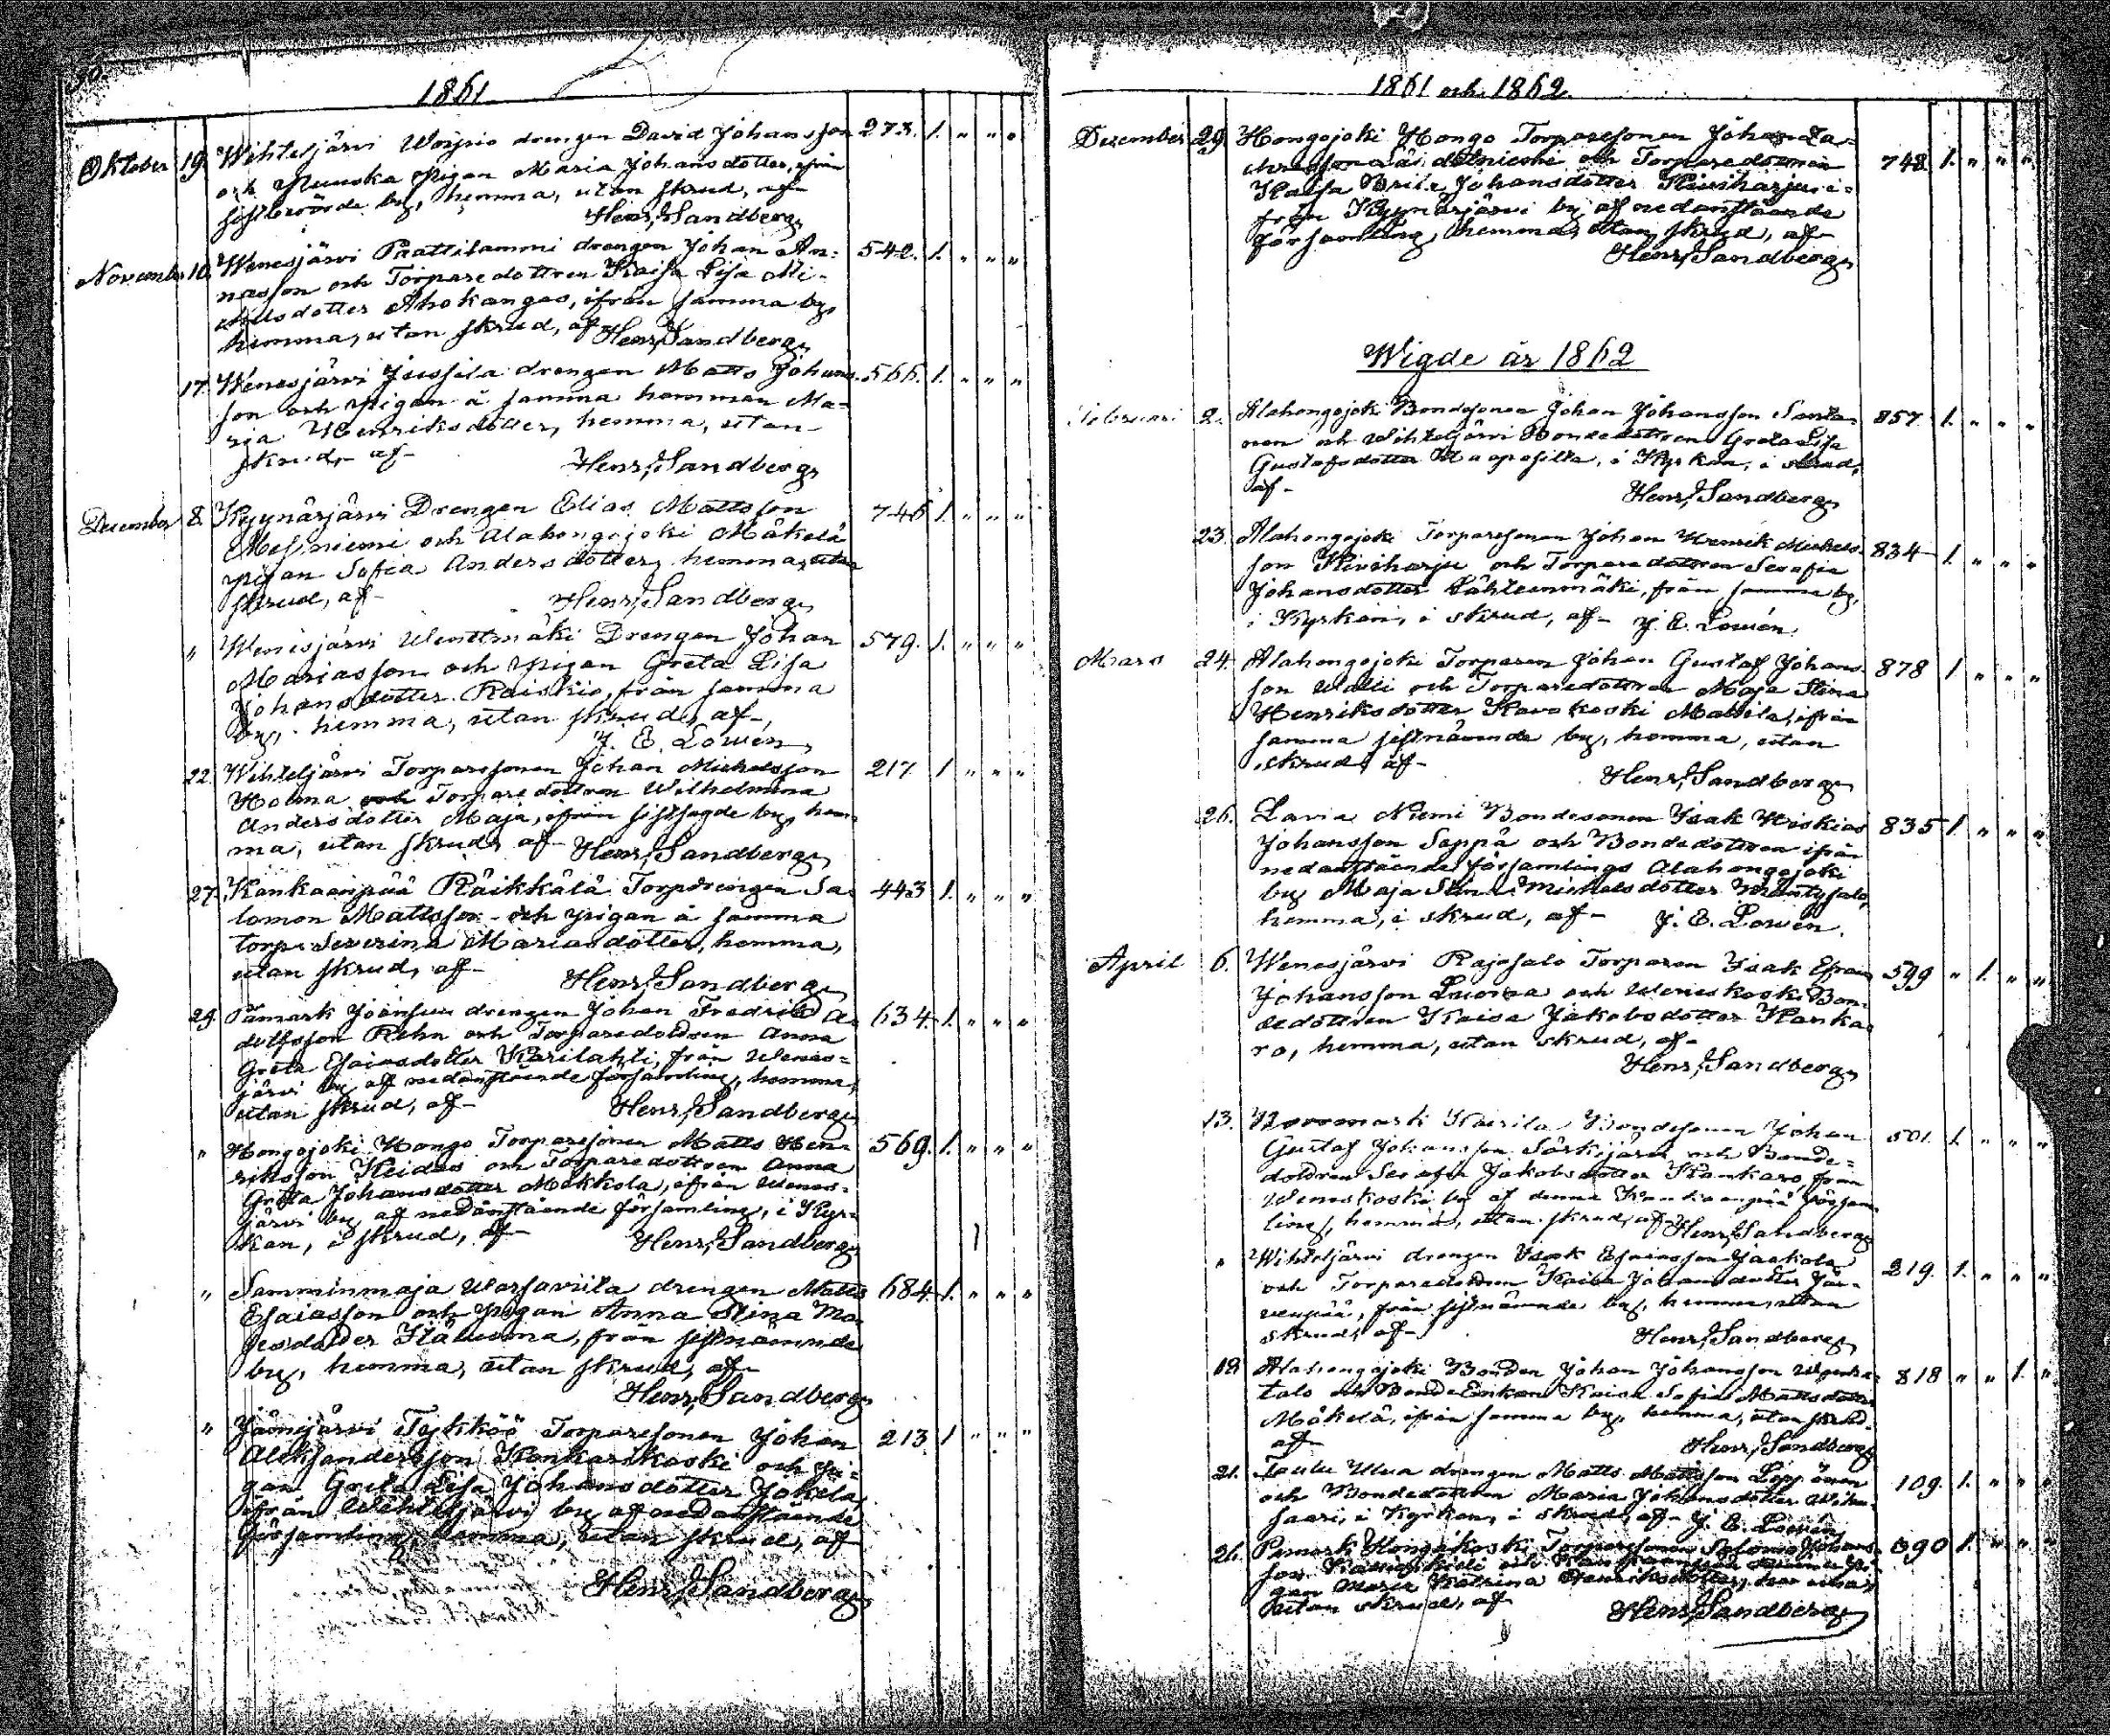 1861
Oktober 19. Wihtesjärvi Worpio drengen David Johansson 273. 1. " " "
och Nuuska pigan Maria Johansdotter, ifrån
sistberörde by, hemma, utan skrud, af
Henr. Sandberg,
November 10. Wenesjärvi Paattilammi drengen Johan An- 542. 1. " " "
nasson och Torparedottren Kaisa Lisa Mi-
chelsdotter Ahokangas, ifrån samma by,
hemma, utan skrud, af Henr. Sandberg,
17. Wenesjärvi Jussila drengen Matts Johans- 566. 1. " " "
son och pigan å samma hemman Ma-
ria Henriksdotter, hemma, utan
skrud, af
Henr. Sandberg,
December 8. Kyynärjärvi Drengen Elias Mattsson 746 1. " " "
Mesiniemi och Alahongojoki Mäkelä
pigan Sofia Andersdotter, hemma, utan
skrud, af
Henr. Sandberg,
" Wenesjärvi Wenttmäki Drengen Johan 579. 1. " " "
Mariasson och pigan Greta Lisa
Johansdotter Raiskio, från samma
by, hemma, utan skrud, af
J. E. Lowén,
22. Wihteljärvi Torparesonen Johan Michelsson 217. 1 " " "
Holma och Torparedottren Wilhelmina
Andersdotter Maja, ifrån sistsagde by, hem-
ma, utan skrud, af Henr. Sandberg,
27. Kankaanpää Räikkälä Torpdrengen Sa- 443 1. " " "
lomon Mattsson och pigan å samma
torp Severina Mariasdotter, hemma,
utan skrud, af
Henr. Sandberg,
29. Påmark drengen Johan Fredrik A- 634 1. " " "
dolfsson Rehn och Torparedottren Anna
Greta Esaiasdotter Karilahti, från Wenes-
järvi by af nedanstående församling, hemma,
utan skrud, af
Henr. Sandberg,
" Hongojoki Hongo Torparesonen Matts Hen- 569. 1. " " "
riksson Keidas och Torparedottren Anna
Greta Johansdotter Mokkola, ifrån Wenes-
järvi by af nedanstående församling, i Kyr-
kan, i skrud, af
Henr. Sandberg,
" Samminmaja Warsaviita drengen Matts 684. 1. " " "
Esaiasson och pigan Anna Stina Mo-
sesdotter Kåluoma, från sistnämnde
by, hemma, utan skrud, af
Henr. Sandberg,
" Jämijärvi Tykköö Torparesonen Johan 213. 1 " " "
Aleksandersson Kankarikoski och pi-
gan Greta Lisa Johansdotter Jokela,
ifrån Wihteljärvi by af nedanstående
församling, hemma, utan skrud, af
Henr. Sandberg,
1861 och 1862.
December 29. Hongojoki Hongo Torparesonen Johan Za- 748. 1. " " "
och Torparedottren
Kaisa Brita Johansdotter Kiviharju i-
från Kyynärjärvi by af nedanstående
församling, hemma, utan skrud, af
Henr. Sandberg,
Wigde år 1862
Februari 2. Alahongojoki Bondesonen Johan Johansson Santa- 857. 1. " " "
nen och Wihteljärvi Bondedottren Greta Lisa
Gustafsdotter, i Kyrkan, i skrud,
af
Henr. Sandberg,
23. Alahongojoki Torparesonen Johan Henrik Michels- 834 1. " " "
son Kiviharju och Torparedottren Serafia
Johansdotter Lähteenmäki, från samma by,
i Kyrkan, i skrud, af J. E. Lowén.
Mars 24. Alahongojoki Torparen Johan Gustaf Johans- 878 1 " " "
son Walli och Torparedottren Maja Stina
Henriksdotter Mattila, ifrån
samma sistnämnde by, hemma, utan
skrud, af
Henr. Sandberg,
26. Lavia Niemi Bondesonen Isak Hiskias 835 1. " " "
Johansson Seppä och Bondedottren ifrån
nedanstående församlings Alahongojoki
by Maja Stina Michelsdotter Mäntysalo,
hemma, i skrud, af J. E. Lowén.
April 6. Wenesjärvi Rajasalo Torparen Isak Efraim 599 " 1. " "
Johansson Luoma och Weneskoski Bon-
dedottren Kaisa Jakobsdotter Kanka-
ro, hemma, utan skrud, af
Henr. Sandberg,
13. Norrmark Kairila Bondesonen Johan 501. 1. " " "
Gustaf Johansson Särkijärvi och Bonde-
dottren Serafia Jakobsdotter Kankaro, från
Weneskoski by af denna Kankaanpää försam-
ling, hemma, utan skrud, af Henr. Sandberg,
" Wihteljärvi drengen Isak Esaiasson Jaakola 219. 1. " " "
och Torparedottren Kaisa Johansdotter Jär-
venpää, från sistnämnde by, hemma, utan
skrud, af
Henr. Sandberg,
19. Alahongojoki Bonden Johan Johansson 818 " " 1. "
talo och BondeEnkan Kaisa Sofia Mattsdotter
Mäkelä, ifrån samma by, hemma, utan skrud,
af
Henr. Sandberg,
21. drengen Matts Mattsson Leppänen 109. 1. " " "
och Bondedottren Maria Johansdotter
saari, i Kyrkan, i skrud, af J. E. Lowén,
26. Pomark Hongakoski Torparesonen Salomo Johans- 690 1. " " "
son
gan Maria Katrina Henriksdotter,
utan skrud, af
Henr. Sandberg,